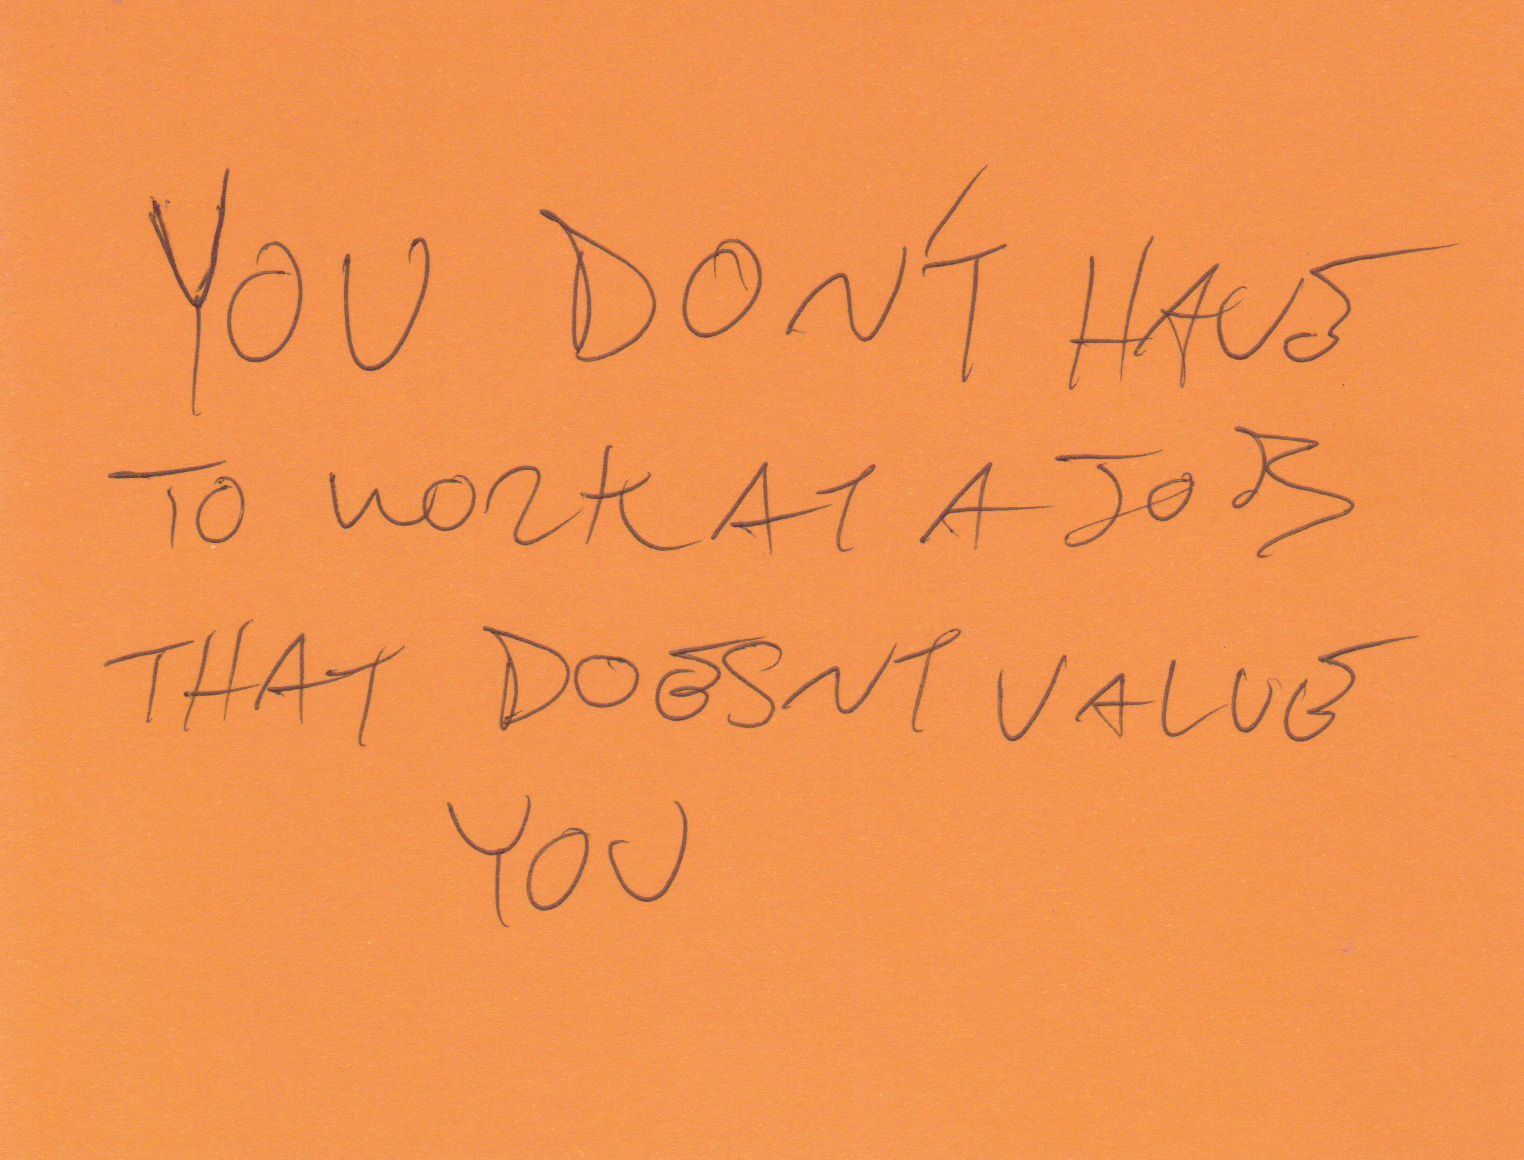 YOU DON'T HAVE
TO WORK AT A JOB
THAT DOESNT VALUE
YOU